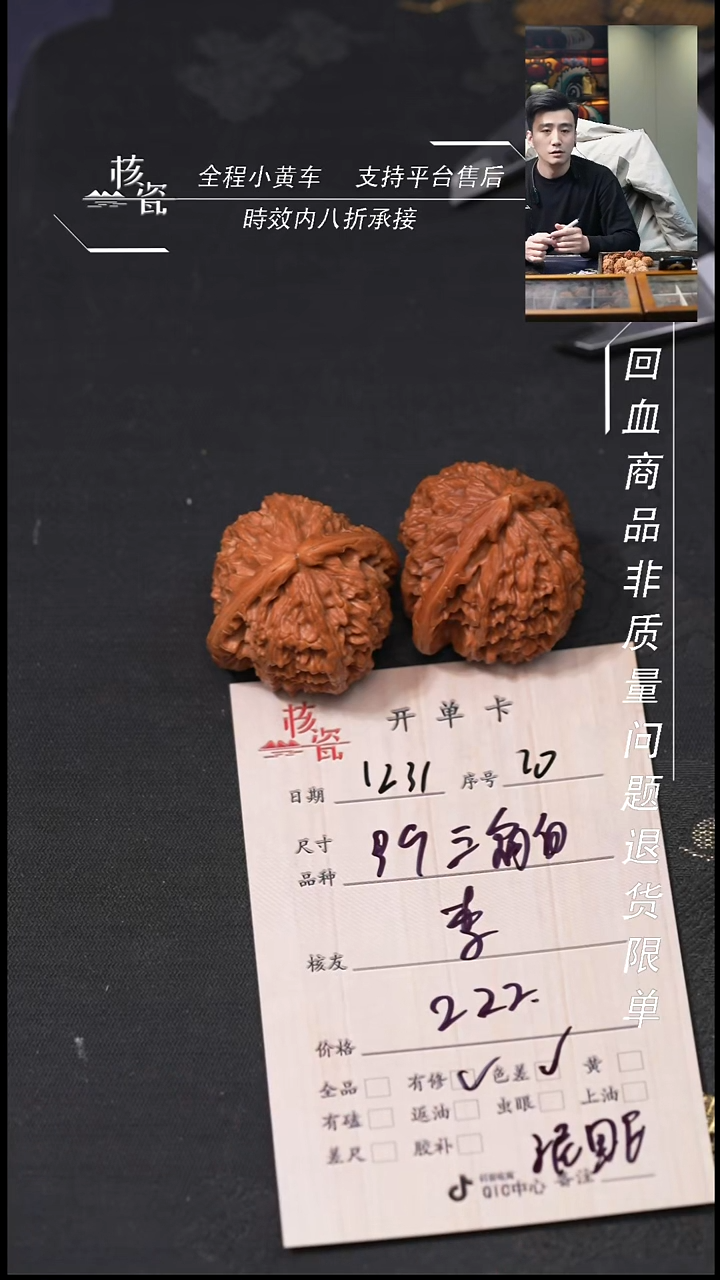 核瓷
全程小黄车 支持平台售后
時效内八折承接
回血商品非质量问题退货限单
核瓷
开单卡
日期 1231 序号 20
尺寸
品种 39三角白
核友 李
价格 222.
全品 有修 色差 黄
有磕 返油 虫眼 上油
差尺 胶补
QIC中心 备注